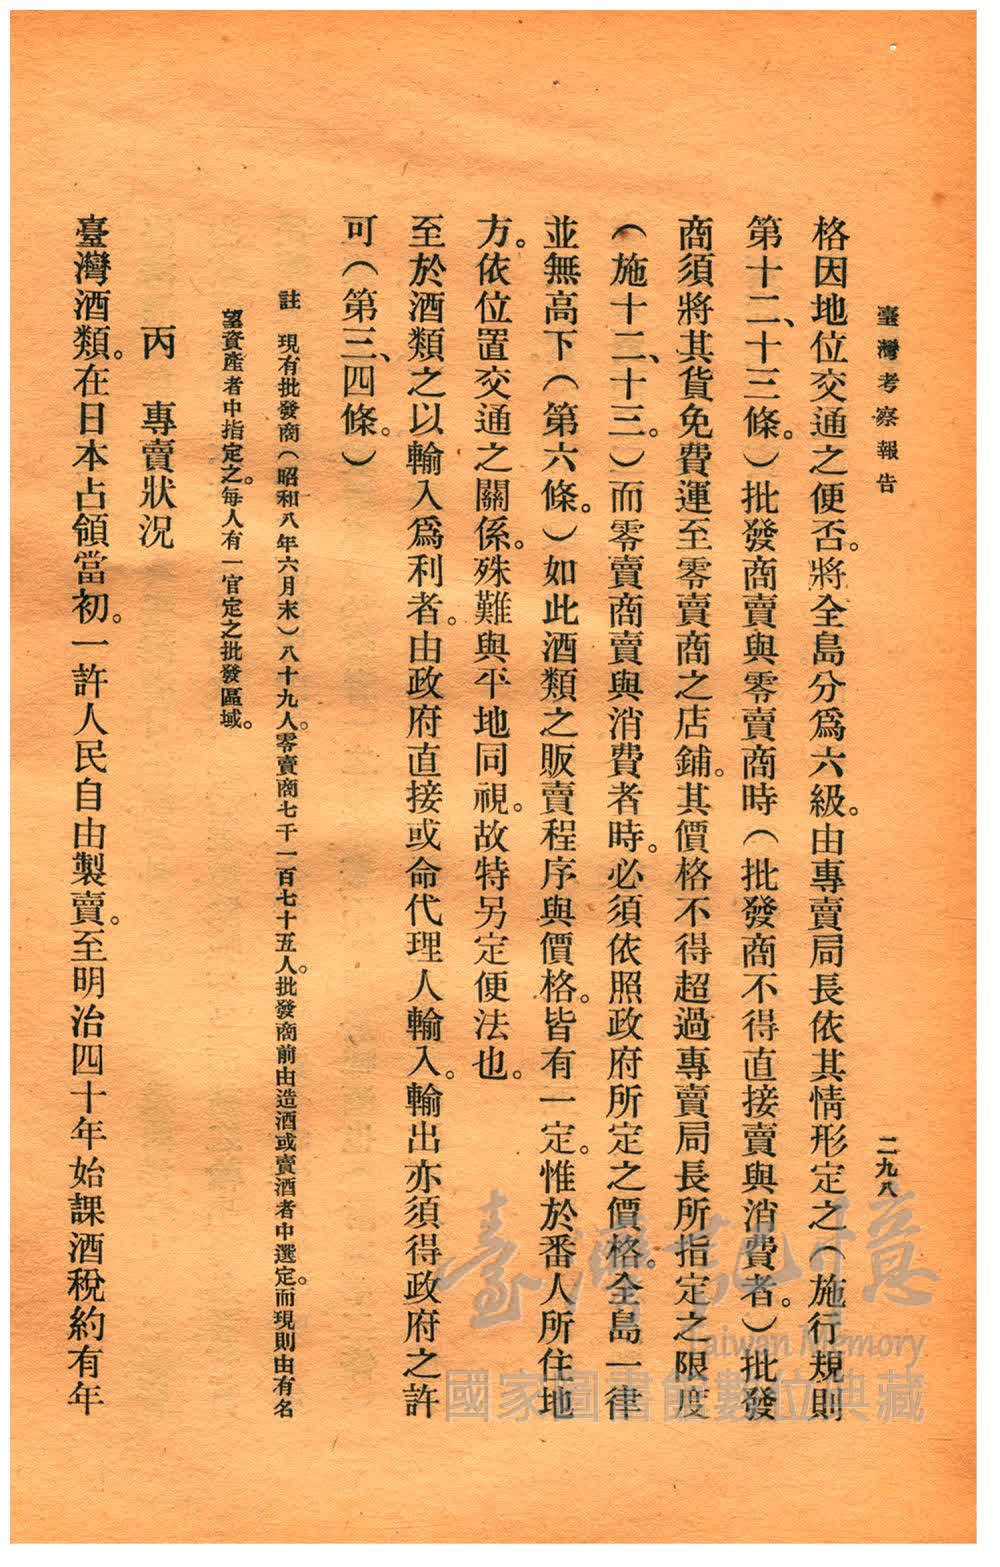 臺灣考察報告
二九八
格因地位交通之便否。將全島分爲六級。由專賣局長依其情形定之（施行規則
第十二、十三條。）批發商賣與零賣商時（批發商不得直接賣與消費者。）批發
商須將其貨免費運至零賣商之店鋪。其價格不得超過專賣局長所指定之限度
（施十二、十三。）而零賣商賣與消費者時。必須依照政府所定之價格。全島一律
並無高下（第六條。）如此酒類之販賣程序與價格。皆有一定。惟於番人所住地
方。依位置交通之關係。殊難與平地同視。故特另定便法也。
至於酒類之以輸入爲利者。由政府直接或命代理人輸入。輸出亦須得政府之許
可（第三、四條。）
註　現有批發商（昭和八年六月末）八十九人。零賣商七千一百七十五人。批發商前由造酒或賣酒者中選定。而現則由有名
望資產者中指定之。每人有一官定之批發區域。
丙　專賣狀況
臺灣酒類。在日本占領當初。一許人民自由製賣。至明治四十年始課酒稅約有年
臺灣記憶
Taiwan Memory
國家圖書館數位典藏